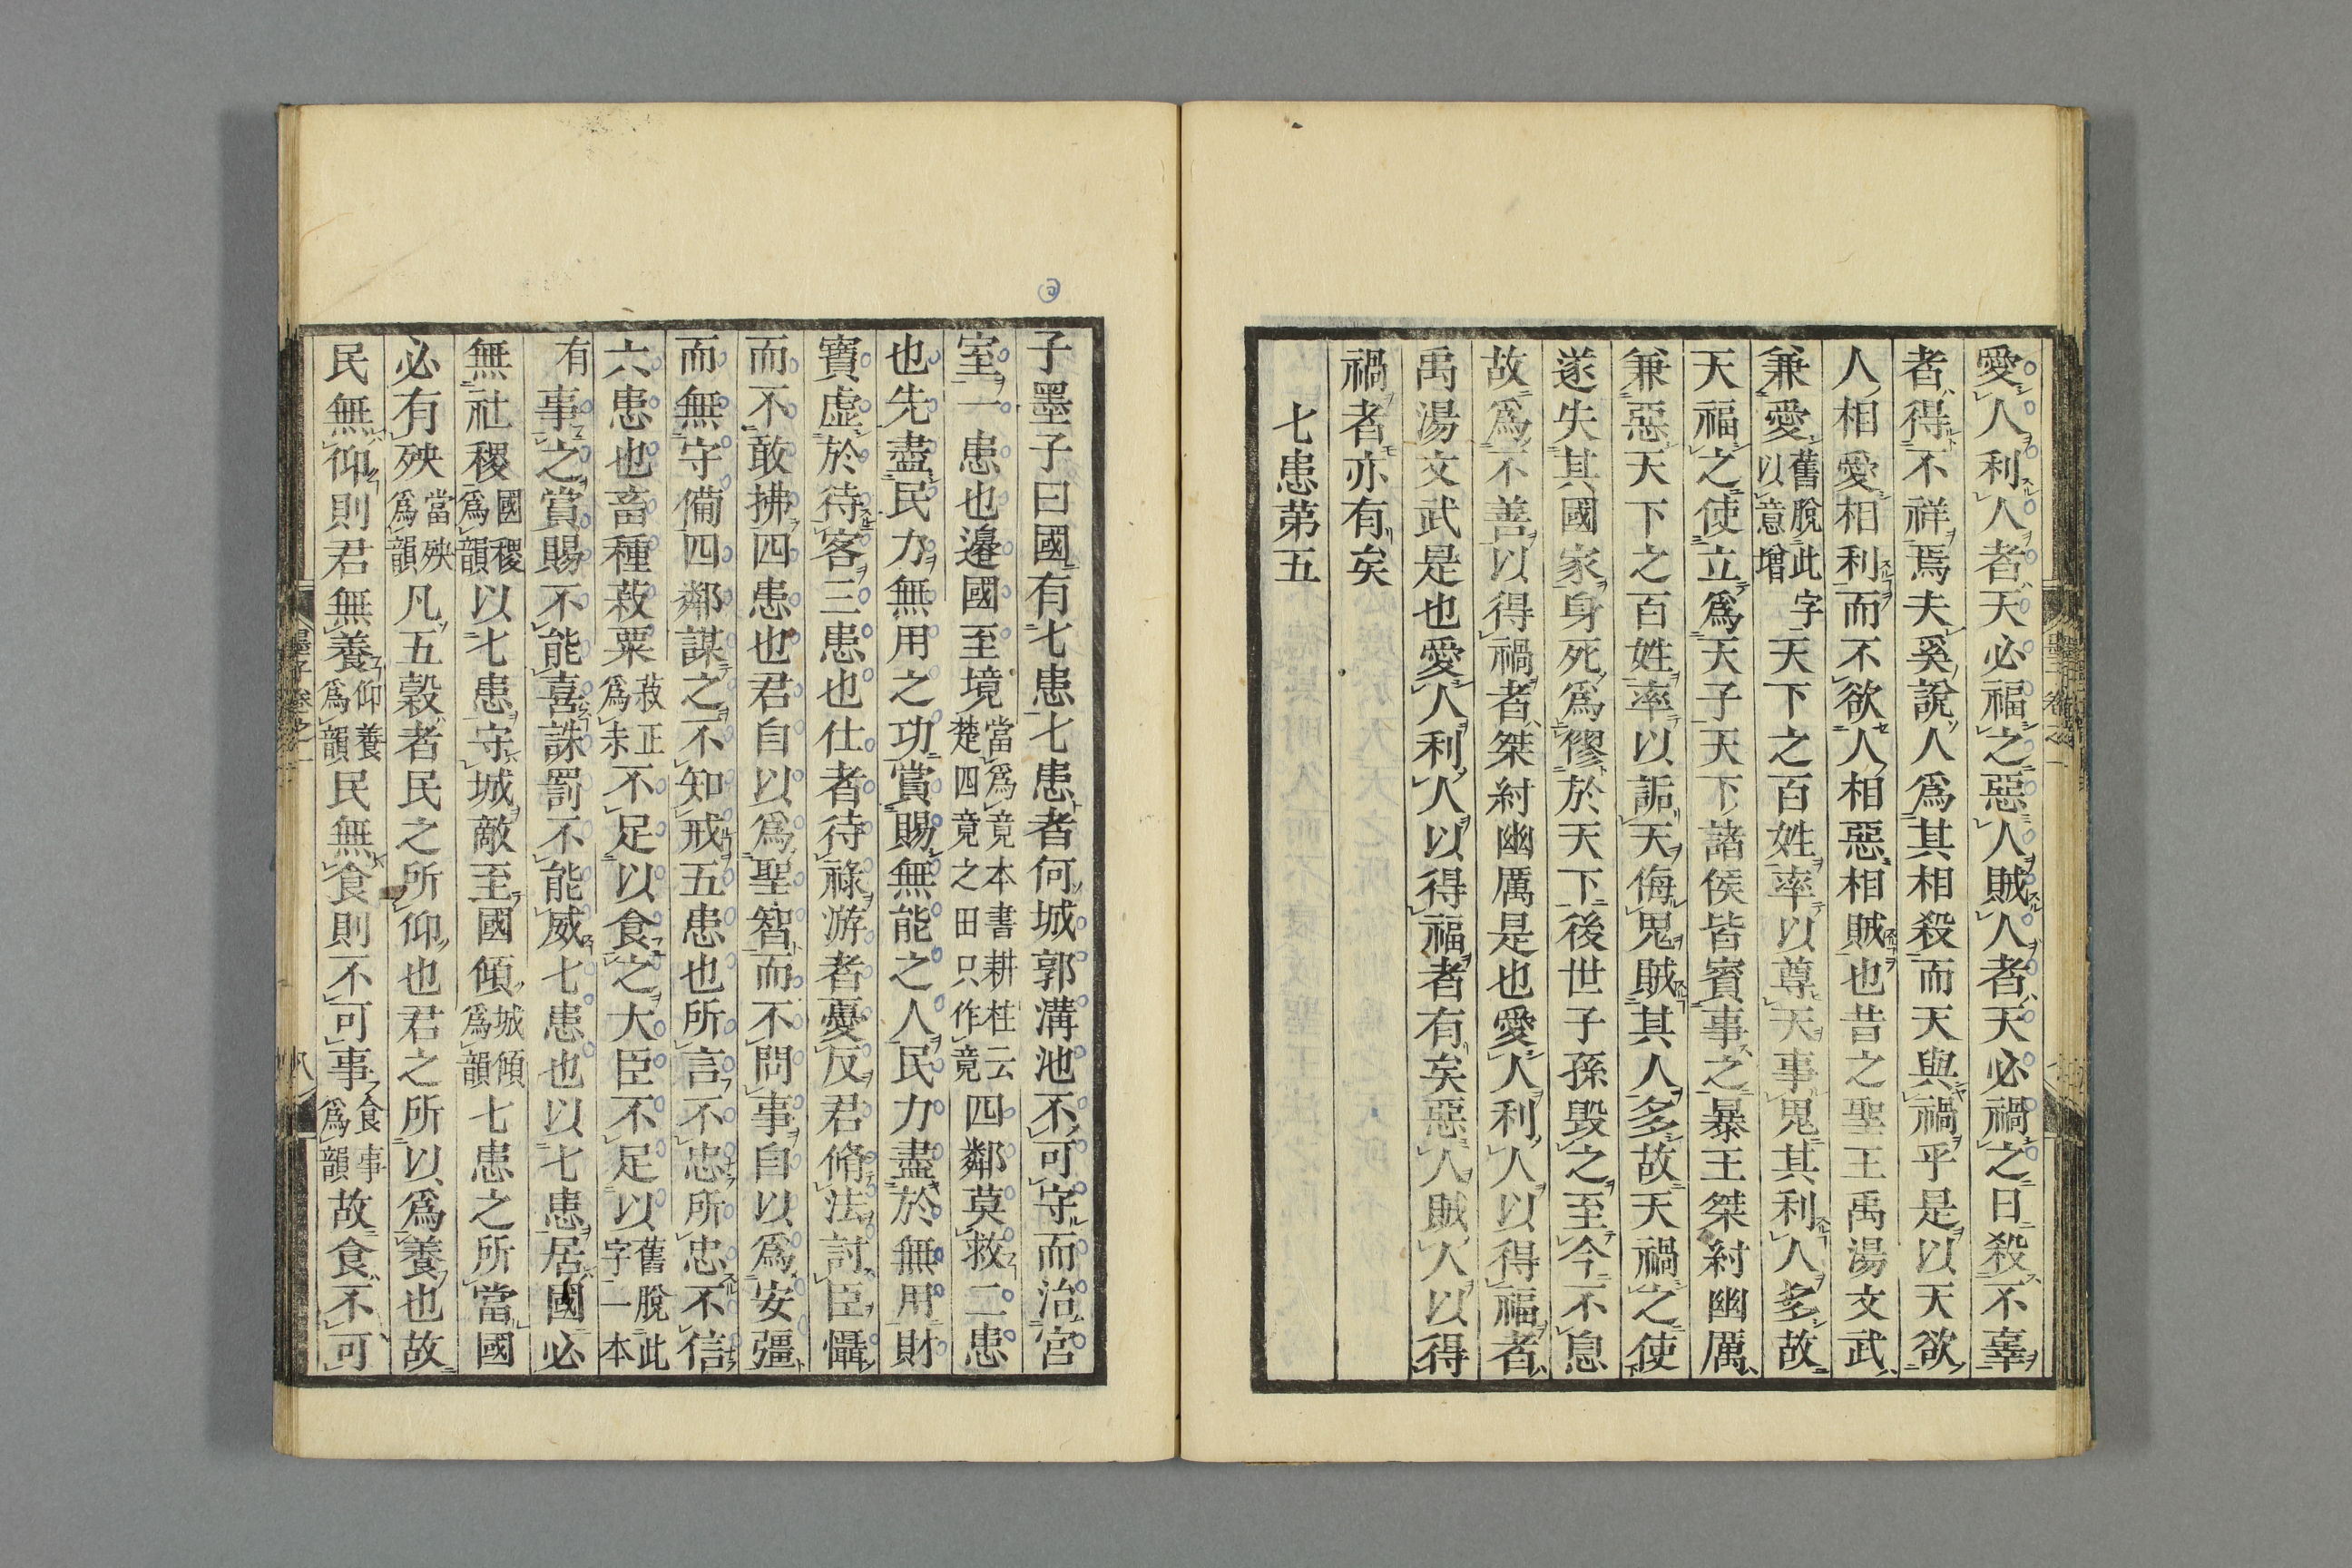 愛人利人者天必福之惡人賊人者天必禍之曰殺不辜
者得不祥焉夫奚說人爲其相殺而天與禍乎是以天欲
人相愛相利而不欲人相惡相賊也昔之聖王禹湯文武
兼愛舊脫此字以意增天下之百姓率以尊天事鬼其利人多故
天福之使立爲天子天下諸侯皆賓事之暴王桀紂幽厲
兼惡天下之百姓率以詬天侮鬼賊其人多故天禍之使
遂失其國家身死爲僇於天下後世子孫毀之至今不息
故爲不善以得禍者桀紂幽厲是也愛人利人以得福者
禹湯文武是也愛人利人以得福者有矣惡人賊人以得
禍者亦有矣
七患第五
子墨子曰國有七患七患者何城郭溝池不可守而治宮
室一患也邉國至境當爲竟本書耕柱云楚四竟之田只作竟四鄰莫救二患
也先盡民力無用之功賞賜無能之人民力盡於無用財
寶虛於待客三患也仕者待祿游者憂反君脩法討臣懾
而不敢拂四患也君自以爲聖智而不問事自以爲安彊
而無守備四鄰謀之不知戒五患也所言不忠所忠不信
六患也畜種菽粟菽正爲尗不足以食之大臣不足以舊脫此字一本
有事之賞賜不能喜誅罰不能威七患也以七患居國必
無社稷國稷爲韻以七患守城敵至國傾城傾爲韻七患之所當國
必有殃當殃爲韻凡五穀者民之所仰也君之所以爲養也故
民無仰則君無養仰養爲韻民無食則不可事食事爲韻故食不可
墨子卷之一
八